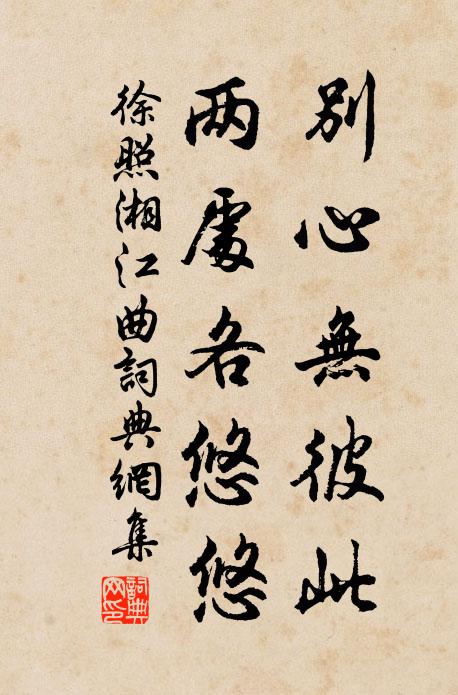 別心無彼此
兩處各悠悠
徐照湘江曲詞典網集
詞典网印